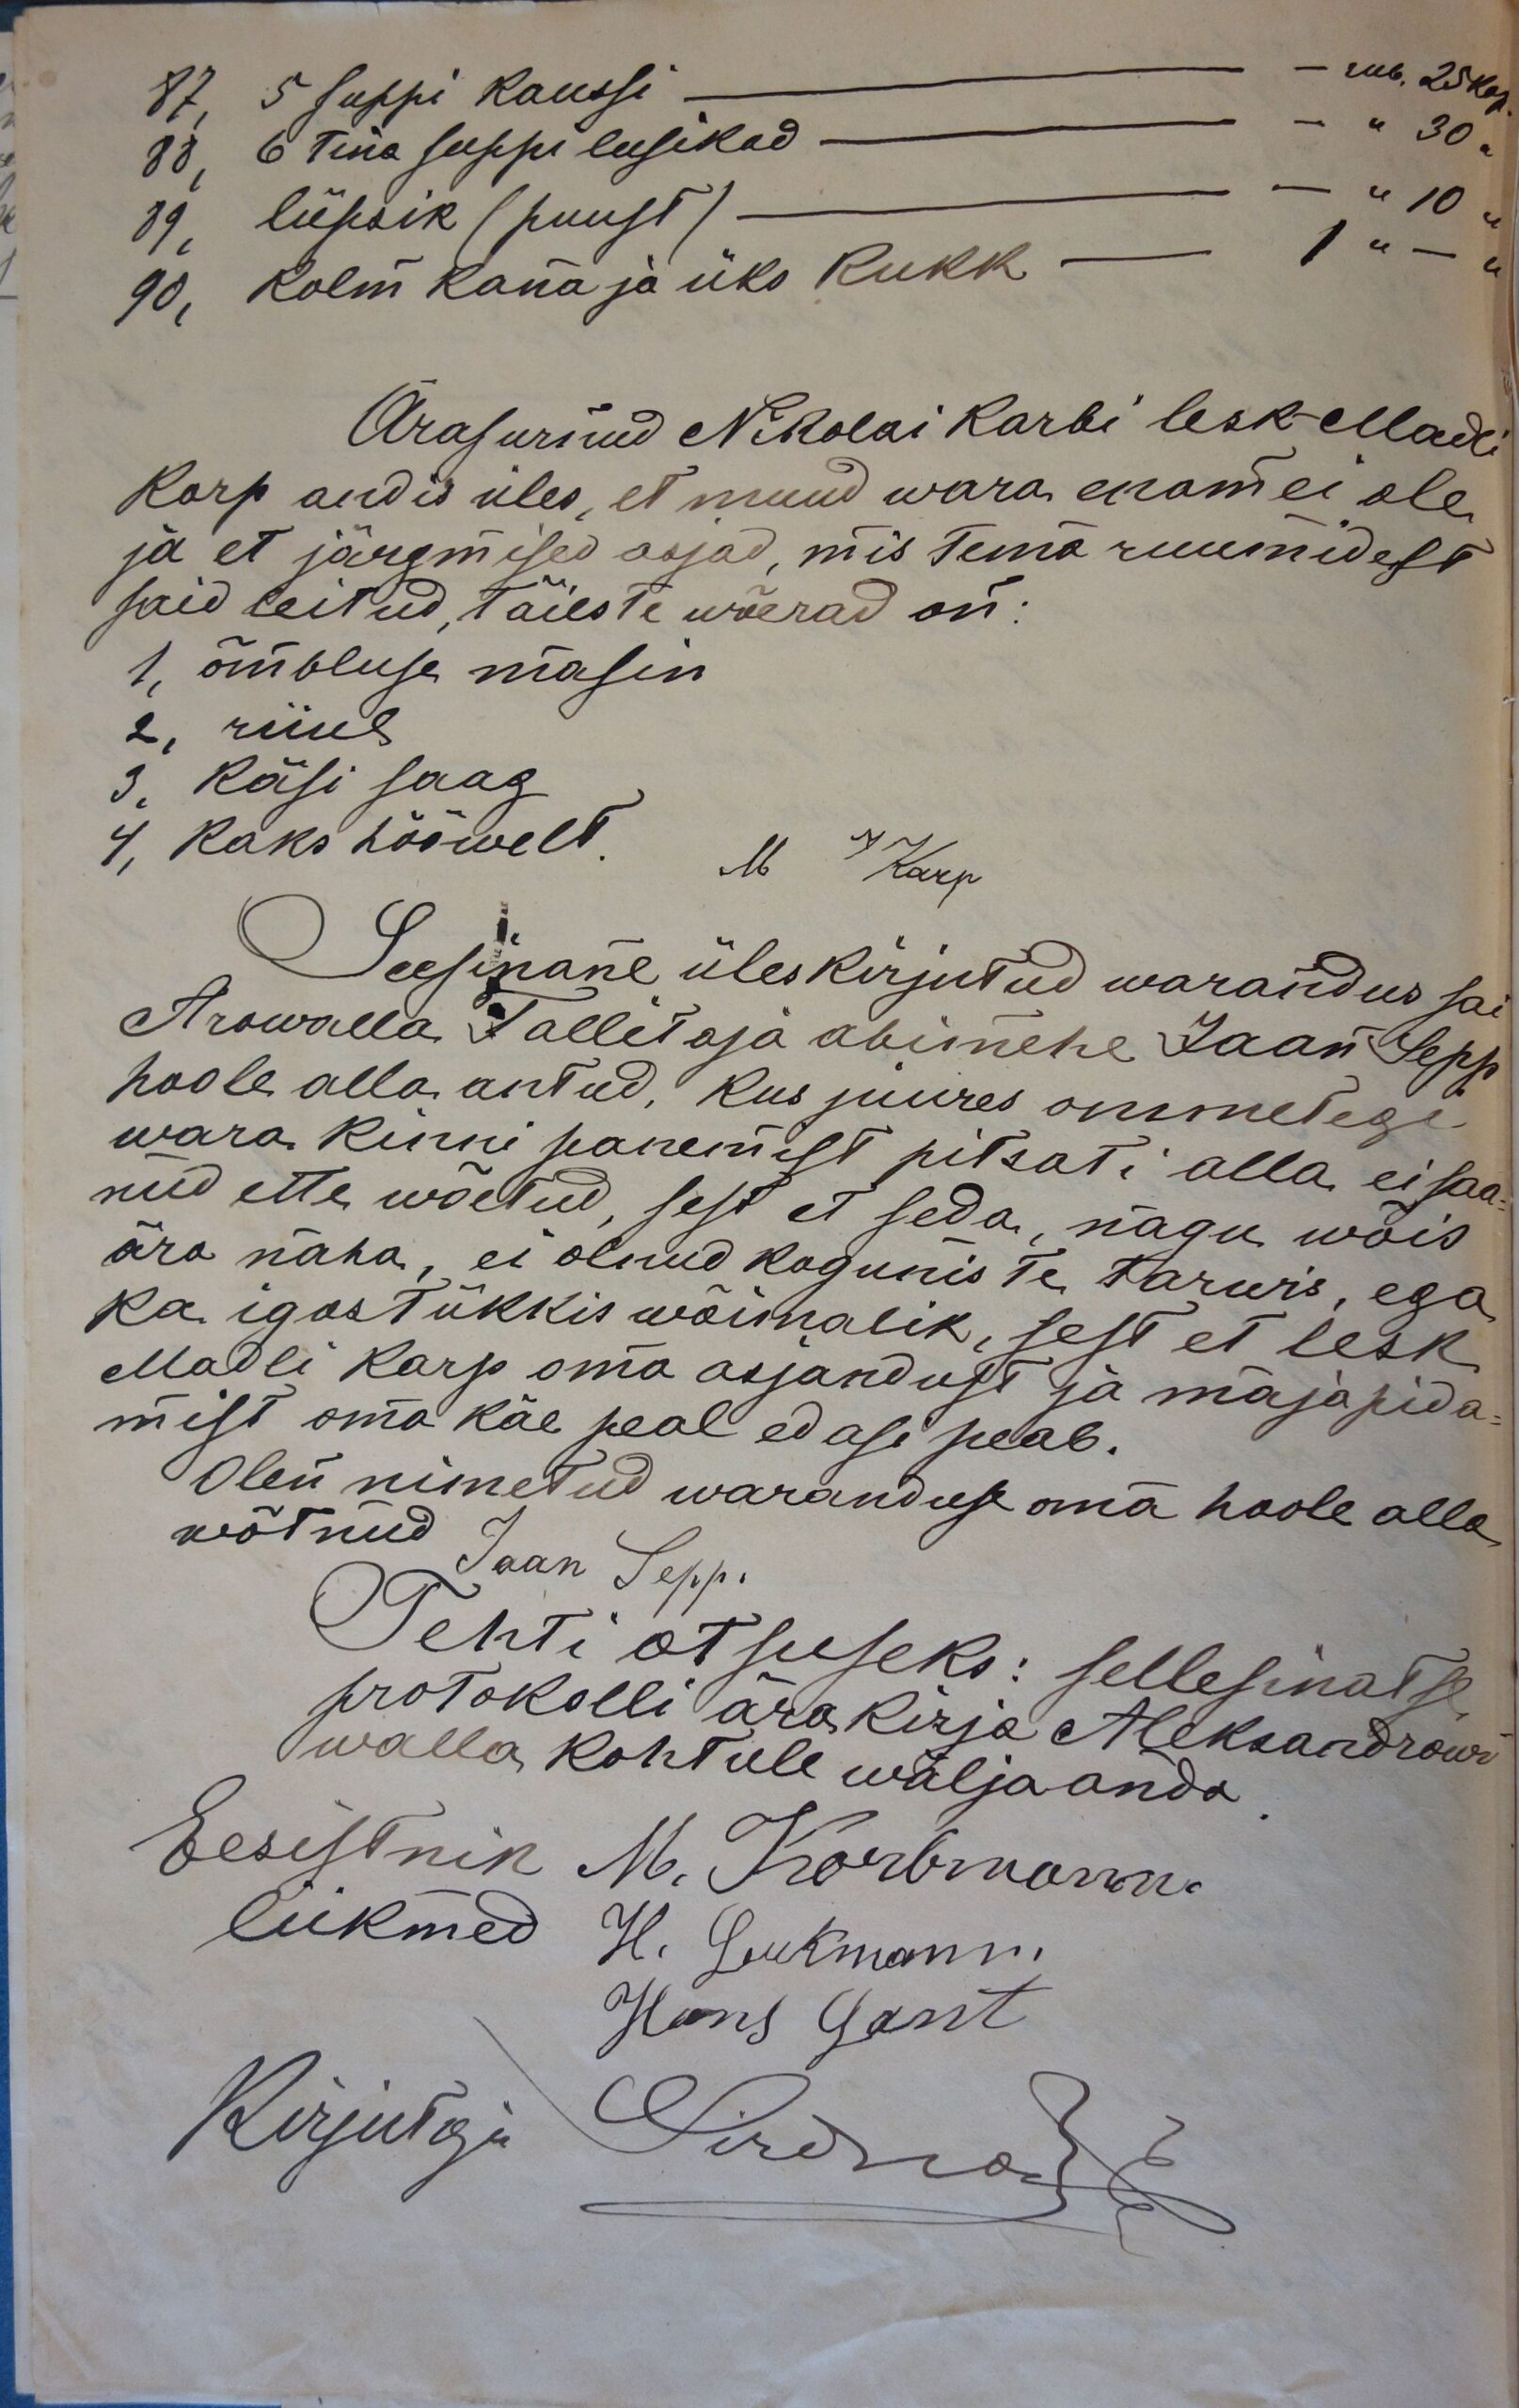 87, 5 suppi kaussi — — rub. 25 kop.
88, 6 tina suppi lusikad — — " 30 "
89, lüpsik (puust) — — " 10 "
90, Kolm kana ja üks kukk — 1 " — "
Ärasurnud Nikolai Karbi lesk Madli
Karp andis üles, et muud wara enam ei ole
ja et järgmised asjad, mis tema ruumidest
said leitud, täieste wõerad on:
1, õmbluse masin
2, riiul
3, käsi saag
4, kaks hööwelt.
M Karp
Seesinane üleskirjutud warandus sai
Arowalla Tallitaja abimehe Jaan Sepp
hoole alla antud, kus juures ommetegi
wara kinni panemist pitsati alla ei saa=
nud ette wõetud, sest et seda, nagu wõis
ära näha, ei olnud koguniste tarwis, ega
ka igastükkis wõimalik, sest et lesk
Madli Karp oma asjandust ja majapida=
mist oma käe peal edasi peab.
Olen nimetud waranduse oma hoole alla
wõtnud Jaan Sepp.
Tehti otsuseks: sellesinatse
protokolli ärakirja Aleksandrowi
walla kohtule wälja anda.
Eesistnik M. Korbmann.
liikmed H. Lukmann.
Hans Gant
Kirjutaja